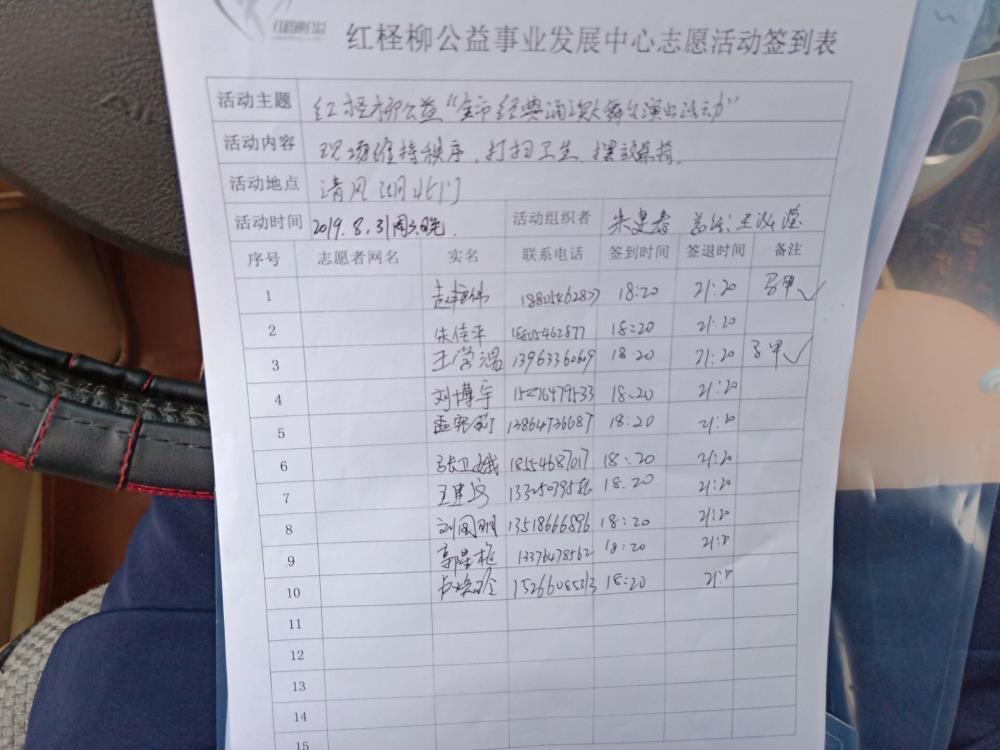 红柽柳公益事业发展中心志愿活动签到表
活动主题 红柽柳公益“全市经典诵读大舞台演出活动”
活动内容 现场维持秩序、打扫卫生、摆放桌椅.
活动地点 清风湖北门
活动时间 2019.8.31周六晚. 活动组织者 朱建春
序号 志愿者网名 实名 联系电话 签到时间 签退时间 备注
1 18:20 21:20 马甲✓
2 朱佳平 18805462877 18:20 21:20
3 13963360609 18:20 21:20 马甲✓
4 刘博宇 18:20 21:20
5 13864736687 18:20 21:20
6 张卫娥 18554687017 18:20 21:20
7 王建安 18:20 21:20
8 刘国明 13518666896 18:20 21:20
9 13376478562 18:20
10 15266085313 18:20
11
12
13
14
15